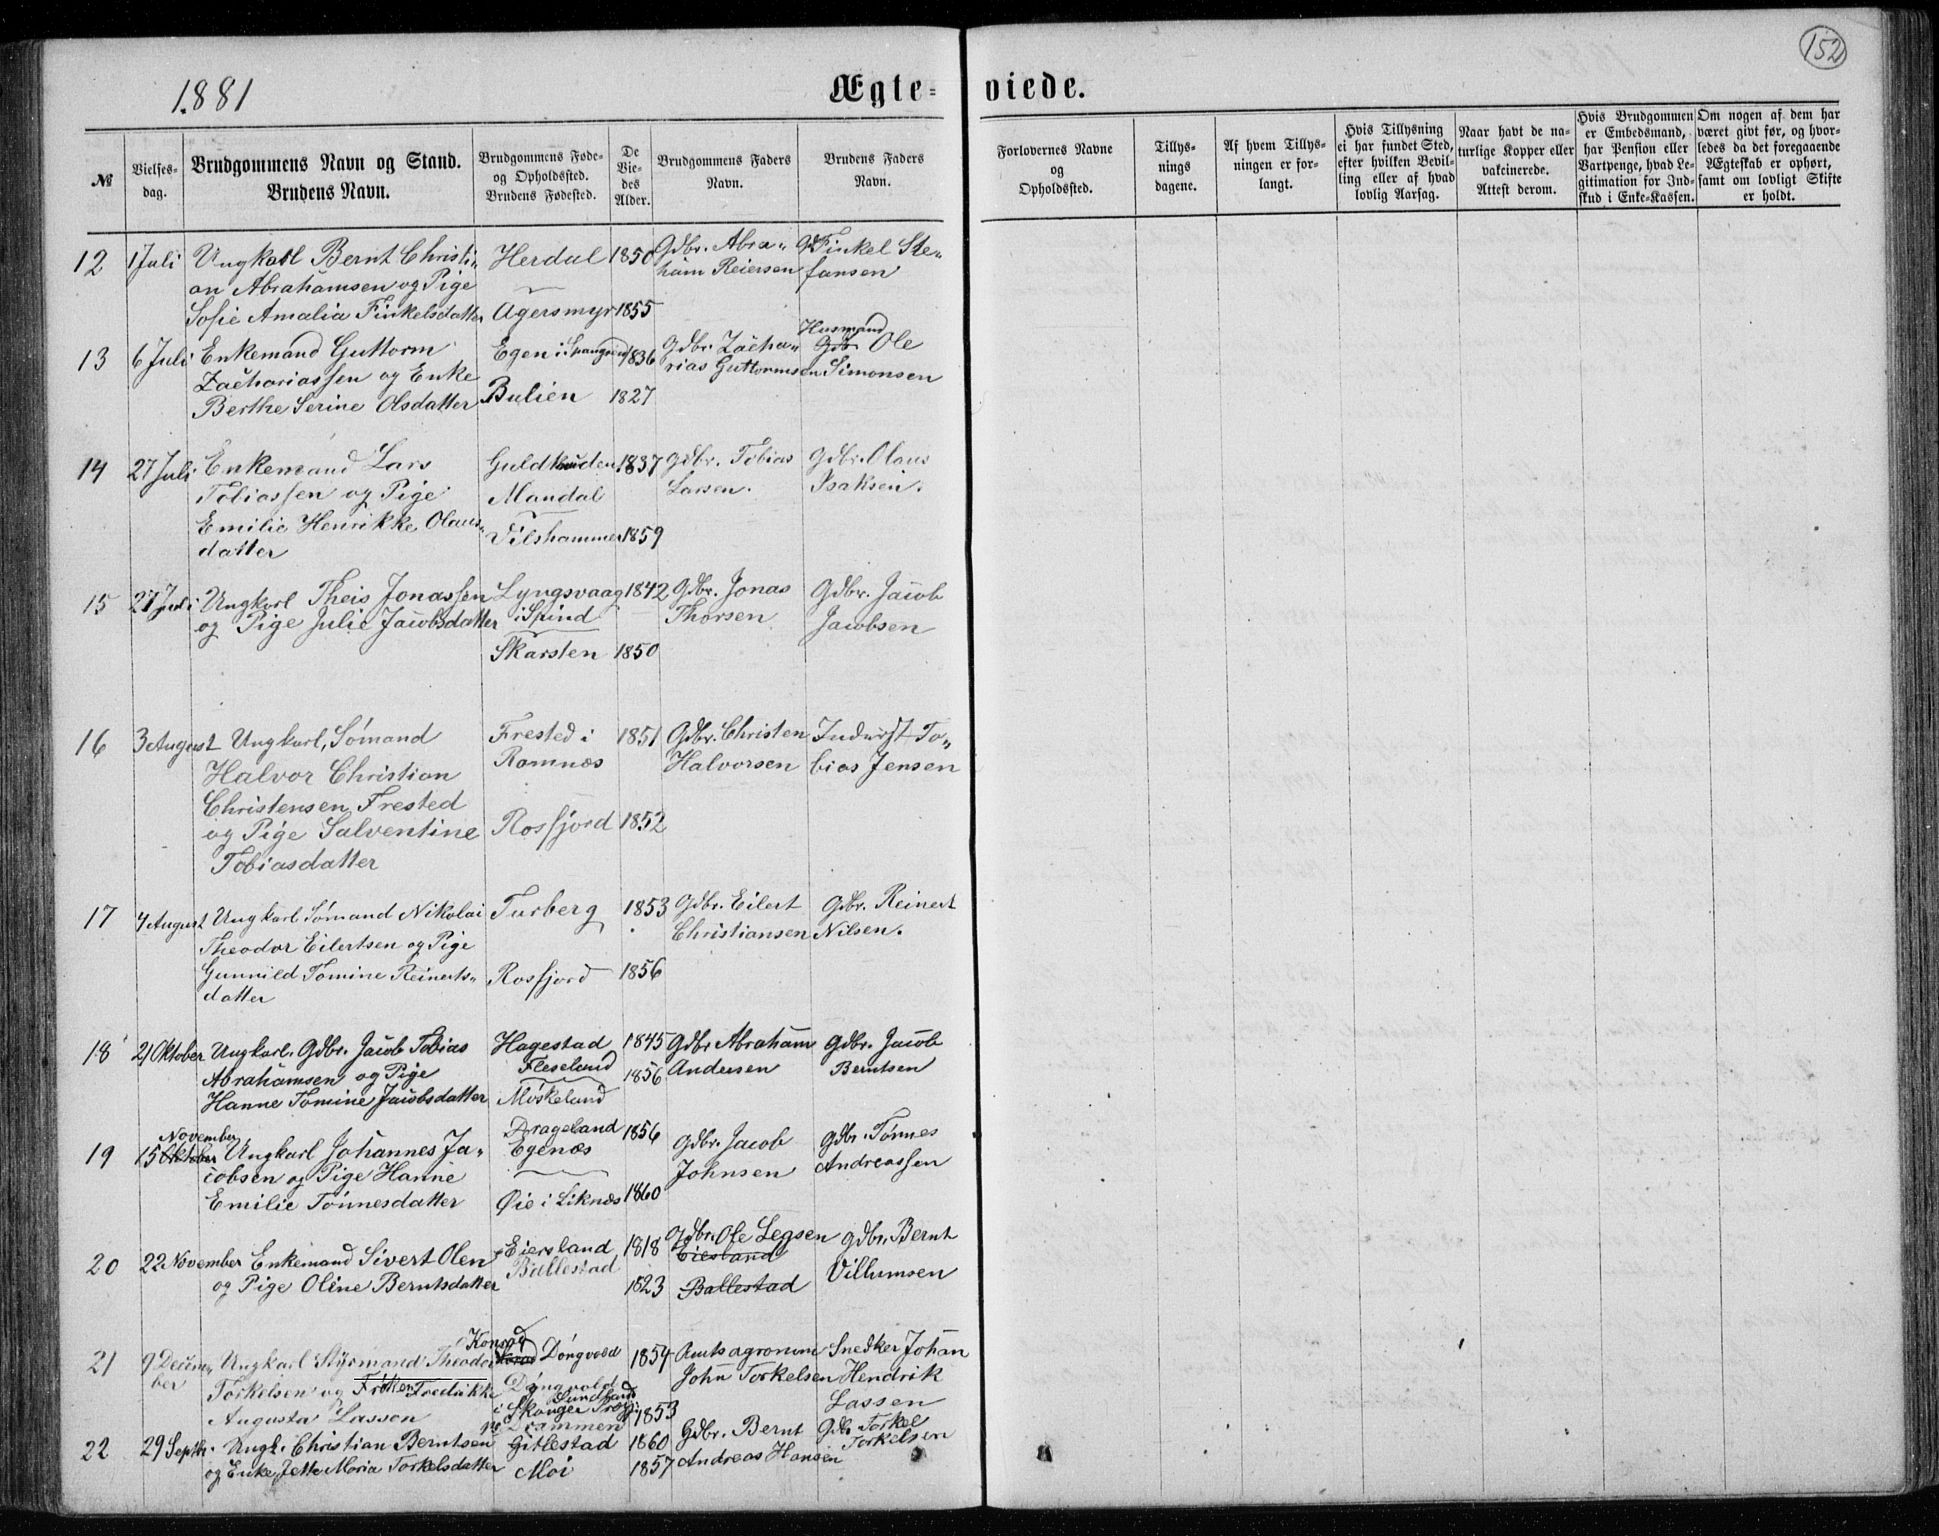 152
1881
Ægte=viede.
№
Vielses-
dag.
Brudgommens Navn og Stand.
Brudens Navn.
Brudgommens Føde-
og Opholdssted.
Brudens Fødested.
De
Vie-
des
Alder.
Brudgommens Faders
Navn.
Brudens Faders
Navn.
Forlovernes Navne
og
Opholdssted.
Tillys-
nings
dagene.
Af hvem Tillys-
ningen er for-
langt.
Hvis Tillysning
ei har fundet Sted,
efter hvilken Bevil-
ling eller af hvad
lovlig Aarsag.
Naar havt de na-
turlige Kopper eller
vakcinerede.
Attest derom.
Hvis Brudgommen
er Embedsmand,
har Pension eller
Vartpenge, hvad Le-
gitimation for Ind-
skud i Enke-Kassen.
Om nogen af dem har
været givt før, og hvor-
ledes da det foregaaende
Ægteskab er ophørt,
samt om lovligt Skifte
er holdt.
12 1 Juli Ungkarl Bernt Christi„ Herdal 1850 Gdbr. Abra„ Gdb Finkel Ste„
an Abrahamsen og Pige ham Reiersen fansen
Sofie Amalia Finkelsdatter Agersmyr 1855
13 6 Juli Enkemand Guttorm Egen i Spangereid 1836 Gdbr. Zacha„ Husmand Gdb Ole
Zachariassen og Enke rias Guttormsen Simonsen
Berthe Serine Olsdatter Bulien 1827
14 27 Juli Enkemand Lars Guldknuden 1837 Gdbr. Tobias Gdbr. Olaus
Tobiassen og Pige Mandal Larsen. Isaksen.
Emilie Henrikke Olaus„
datter Filshammer 1859
15 27 Juli Ungkarl Theis Jonassen Lyngsvaag 1842 Gdbr. Jonas Gdbr. Jacob
og Pige Julie Jacobsdatter i Spind Thorsen Jacobsen
Skarsten 1850
16 3 August Ungkarl, Sømand Frested i 1851 Gdbr. Christen Inderst To„
Halvor Christian Ramnæs Halvorsen bias Jensen
Christensen Frested
og Pige Salventine Rosfjord 1852
Tobiasdatter
17 4 August Ungkarl Sømand Nikolai Furberg 1853 Gdbr. Eilert Gdbr. Reinert
Theodor Eilertsen og Pige Christiansen Nilsen.
Gunnild Tomine Reinerts„ Rosfjord 1856
datter
18 21 Oktober Ungkarl. Gdbr. Jacob Tobias Hagestad 1845 Gdbr Abraham Gdbr. Jacob
Abrahamsen og Pige Fleseland 1856 Andersen Berntsen
Hanne Tomine Jacobsdatter Møskeland
November Drageland 1856
19 15 Oktober Ungkarl Johannes Ja„ Egenæs Gdbr. Jacob Gdbr. Tønnes
cobsen og Pige Hanne Johnsen Andreassen
Emilie Tønnesdatter Øie i Liknæs 1860
20 22 November Enkemand Sivert Olen Eiersland 1818 Gdbr. Ole Legsen Gdbr. Bernt
Ballestad Eiesland Villumsen
og Pige Oline Berntsdatter 1823 Ballestad
Konrad
21 9 Decem„ Ungkarl Styrmand Theodor Døngvold 1854 Amtsagronom Snedker Johan
ber Torkelsen og Frøken Fredrikke Døngvold John Torkelsen Hendrik
Augusta Lassen i Skouger Drammen 1853 Lassen
22 29 Septbr. Ungk. Christian Berntsen Gitlestad 1860 Gdbr. Bernt Gdb Torkel
og Enke Jette Maria Torkelsdatter Moi 1857 Andreas Hansen Torkelsen